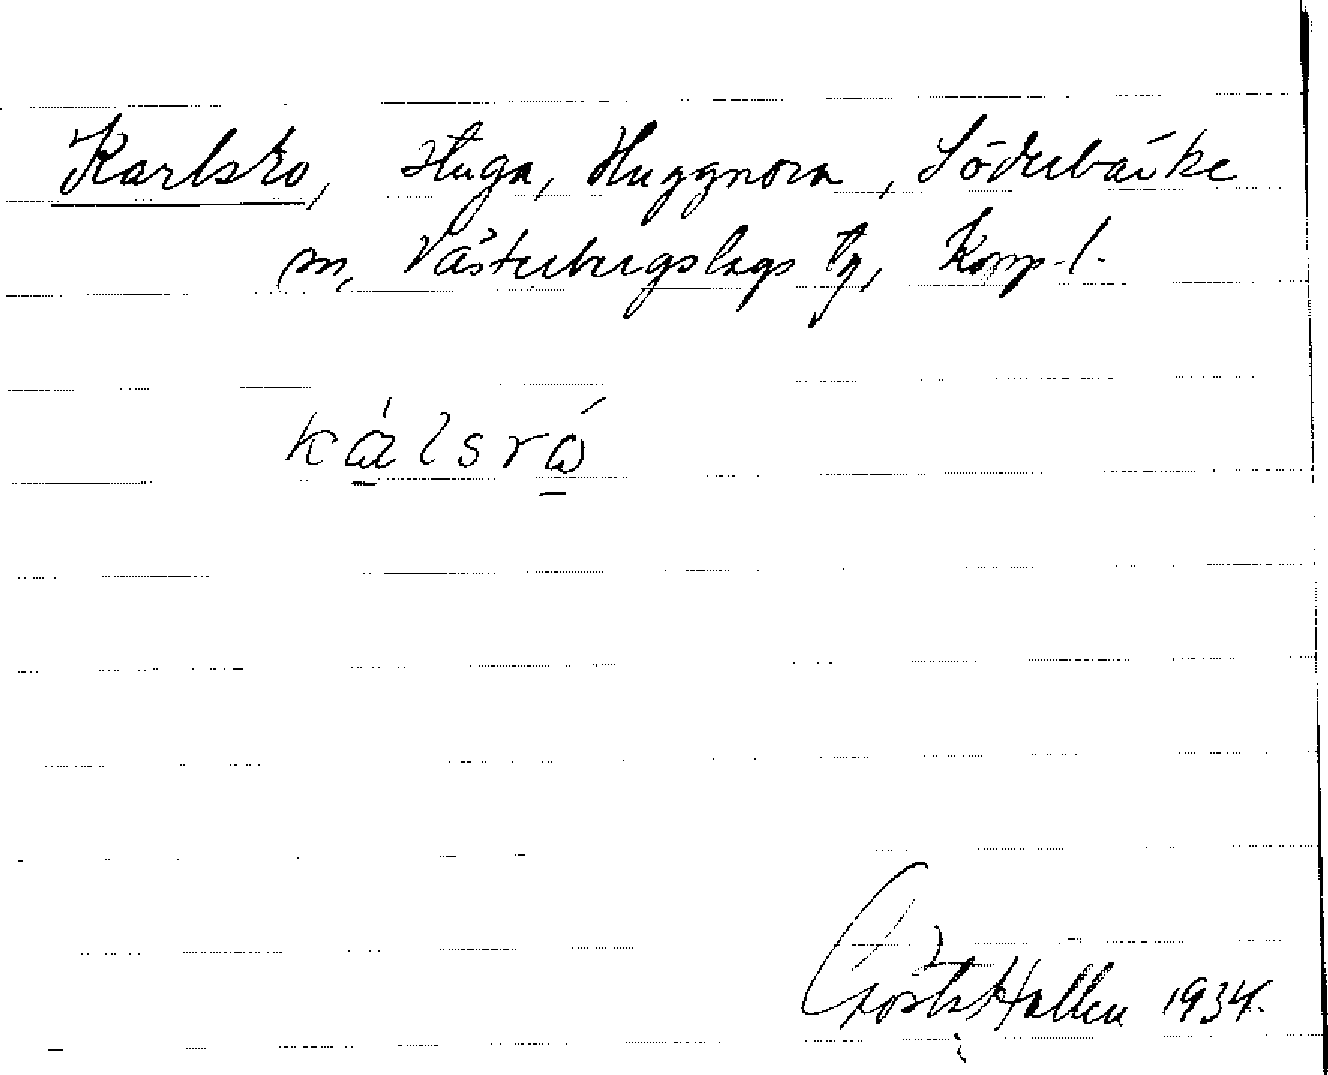 Karlsro, stuga, Huggnora, Söderbärke
sn, Västerbergslags tg, Kopp. l.
kálsró
Gösta Hallén 1934.